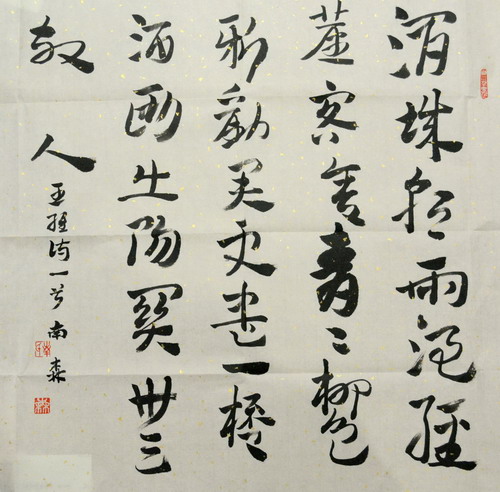 渭城朝雨浥輕
塵客舍青々柳色
新勸君更盡一杯
酒西出陽關無
故人
王維詩一首 南森